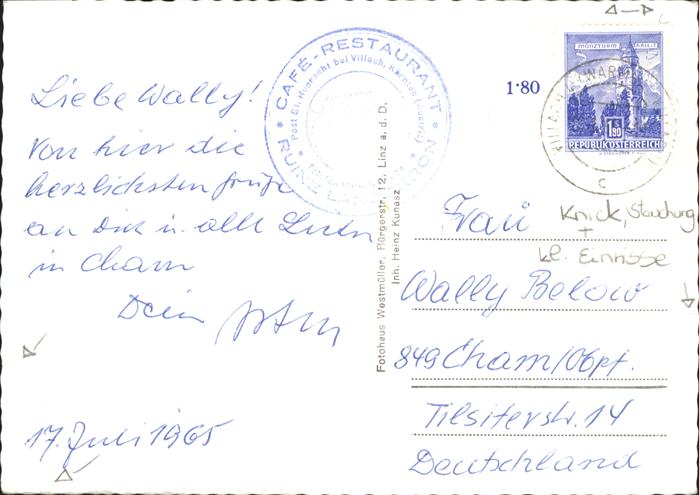 Liebe Wally!
Von hier die
herzlichsten Grüße
an Dich u. alle Lieben
in Cham
Dein
17. Juli 1965
* CAFÉ-RESTAURANT *
Post St. Ruprecht bei Villach, Kärnten (Austria)
RUINE LANDSKRON
Fotohaus Westmüller, Bürgerstr. 12, Linz a. d. D.
Inh. Heinz Kunasz
1·80
MÜNZTURM HALL i. T.
1.80
REPUBLIK ÖSTERREICH
c
Frau
Knick, Stauchung
+
kl. Einrisse
Wally Below
849 Cham/Obpf.
Tilsiterstr. 14
Deutschland